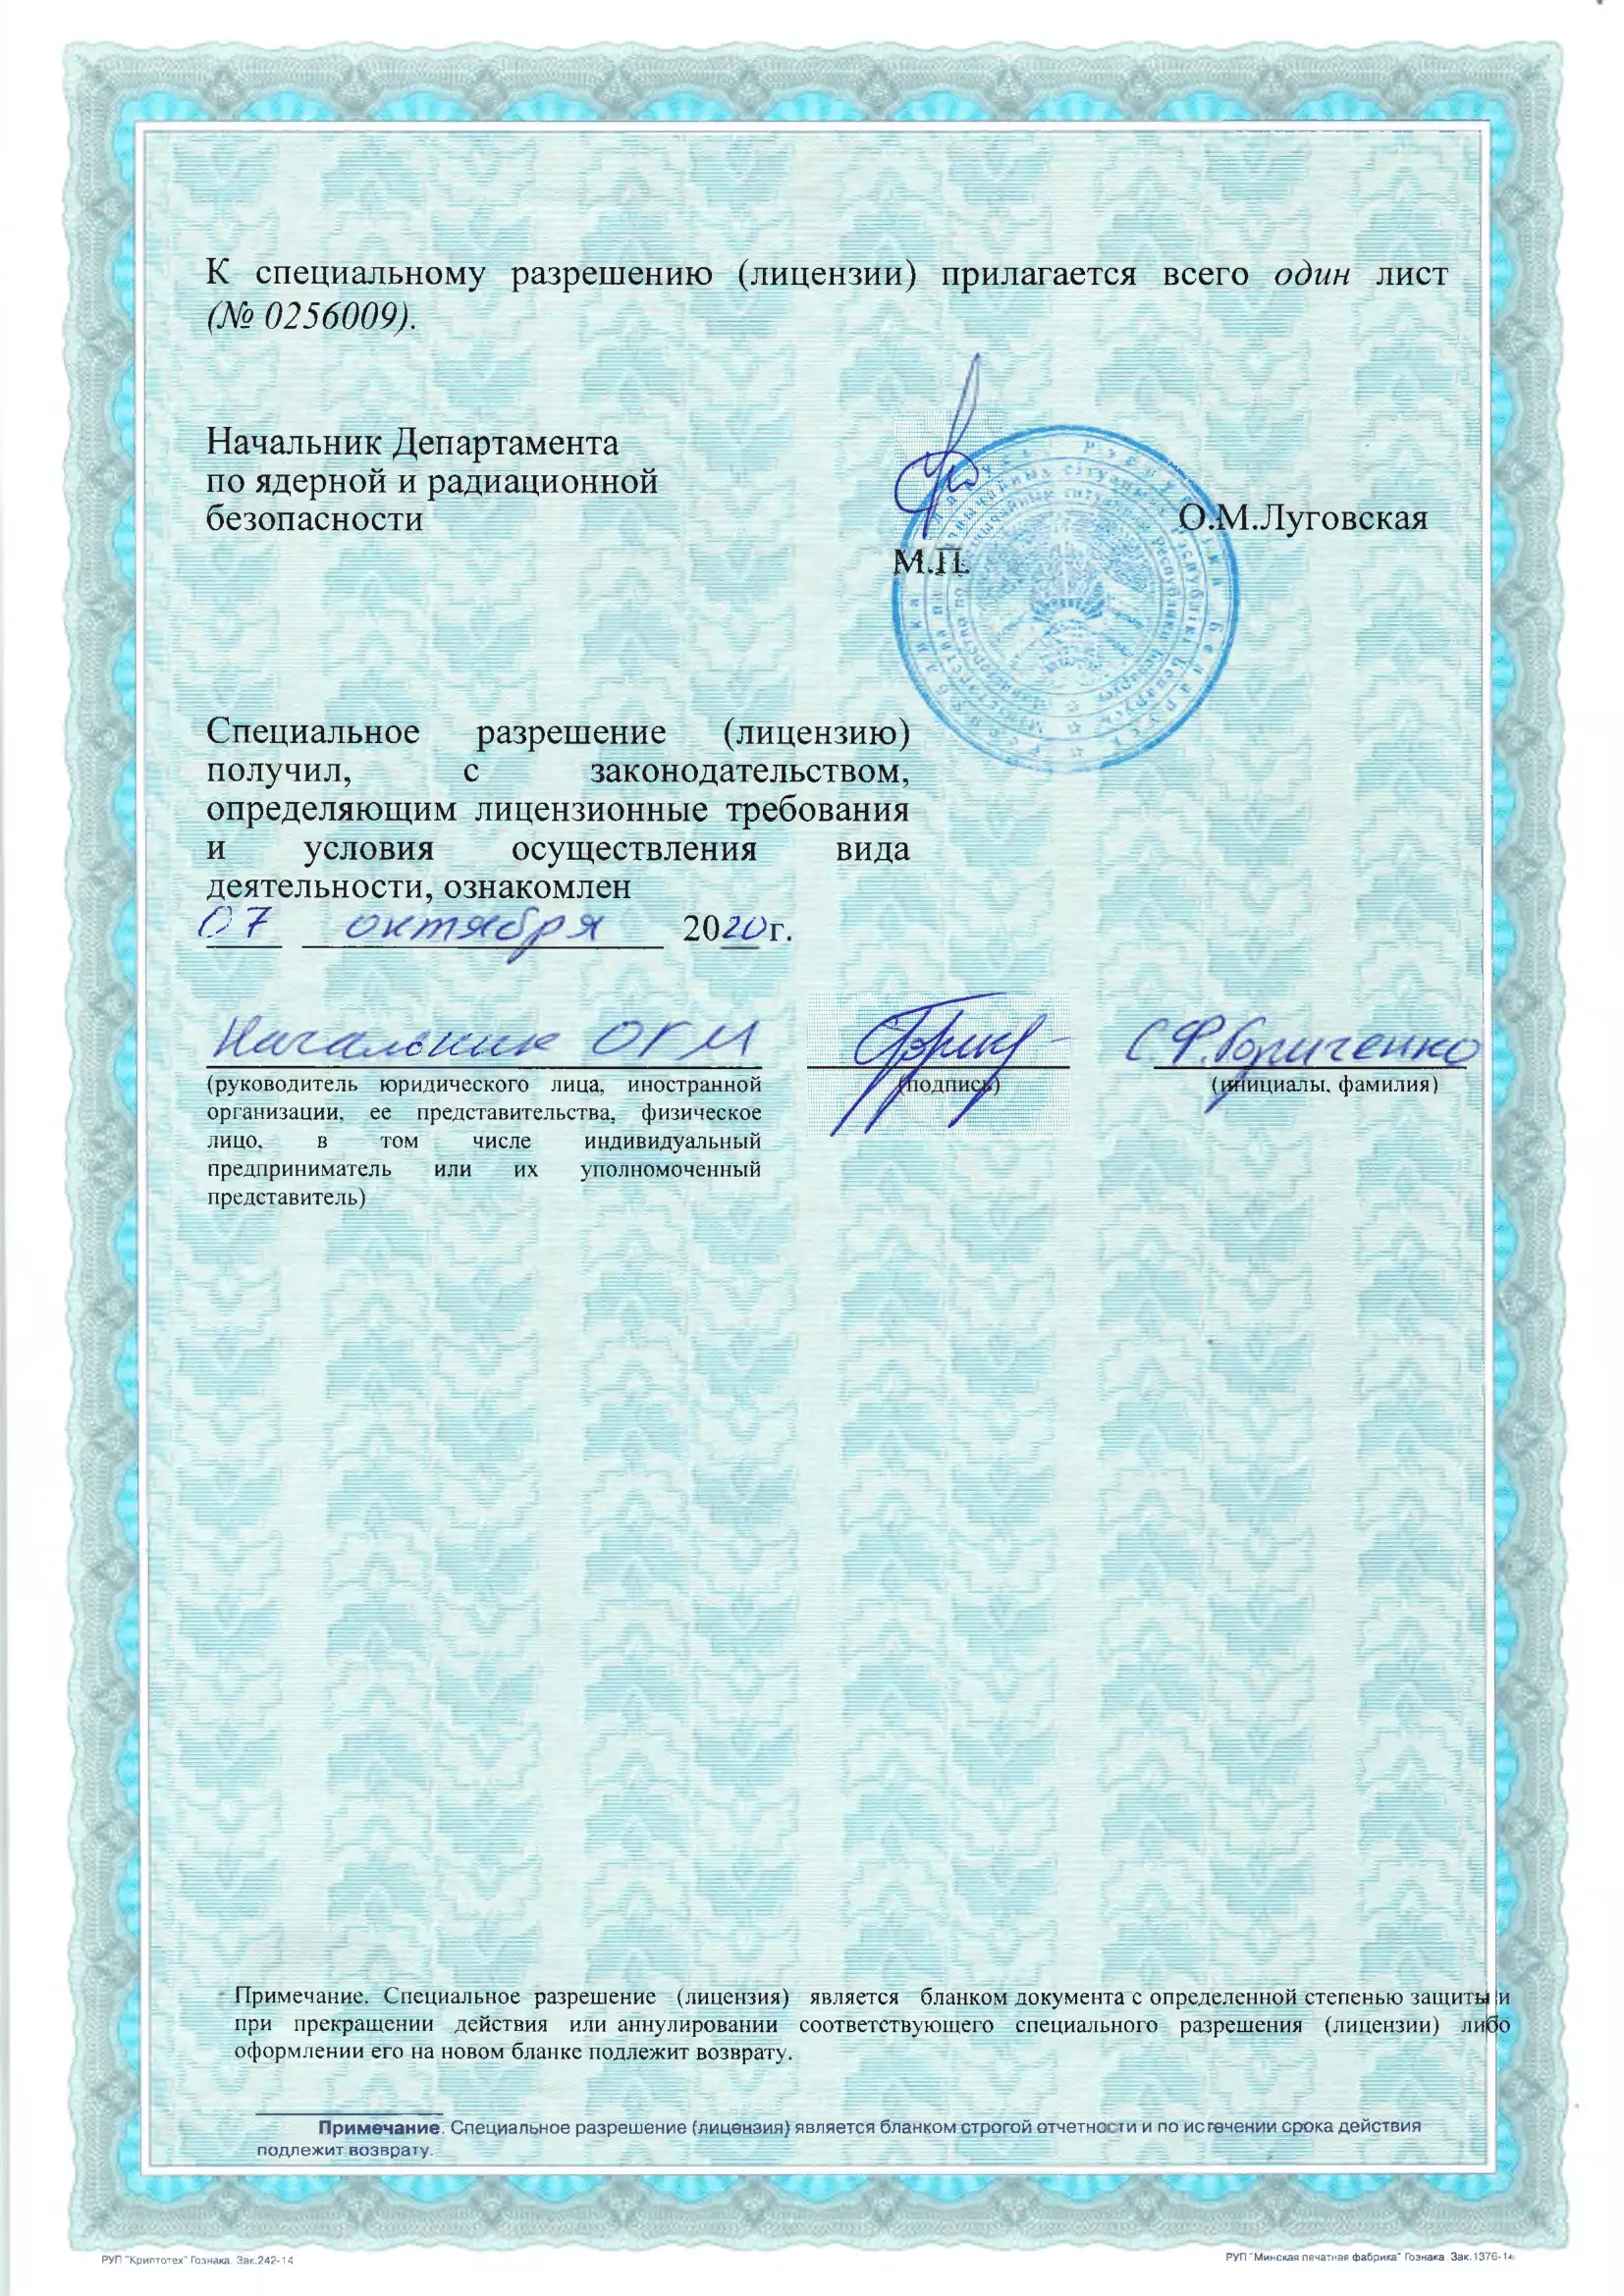 К специальному разрешению (лицензии) прилагается всего один лист
(№ 0256009).
Начальник Департамента
по ядерной и радиационной
безопасности
О.М.Луговская
М.П.
Специальное разрешение (лицензию)
получил, с законодательством,
определяющим лицензионные требования
и условия осуществления вида
деятельности, ознакомлен
07 октября 2020г.
Начальник ОГМ
С.Ф.
(руководитель юридического лица, иностранной
организации, ее представительства, физическое
лицо, в том числе индивидуальный
предприниматель или их уполномоченный
представитель)
(подпись)
(инициалы, фамилия)
Примечание. Специальное разрешение (лицензия) является бланком документа с определенной степенью защиты и
при прекращении действия или аннулировании соответствующего специального разрешения (лицензии) либо
оформлении его на новом бланке подлежит возврату.
Примечание. Специальное разрешение (лицензия) является бланком строгой отчетности и по истечении срока действия
подлежит возврату.
РУП "Криптотех" Гознака. Зак.242-14
РУП "Минская печатная фабрика" Гознака Зак.1376-14